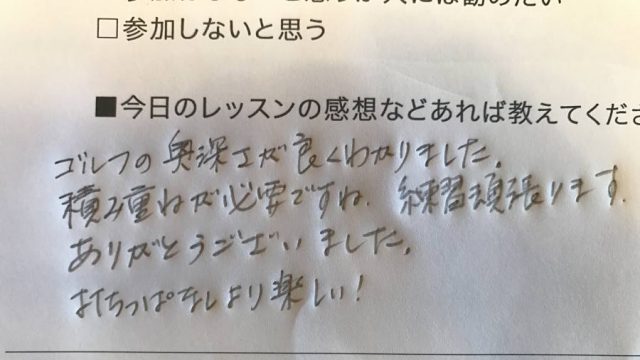 □参加しないと思う
■今日のレッスンの感想などあれば教えてくださ
ゴルフの奥深さが良くわかりました。
積み重ねが必要ですね。練習頑張ります。
ありがとうございました。
打ちっぱなしより楽しい！